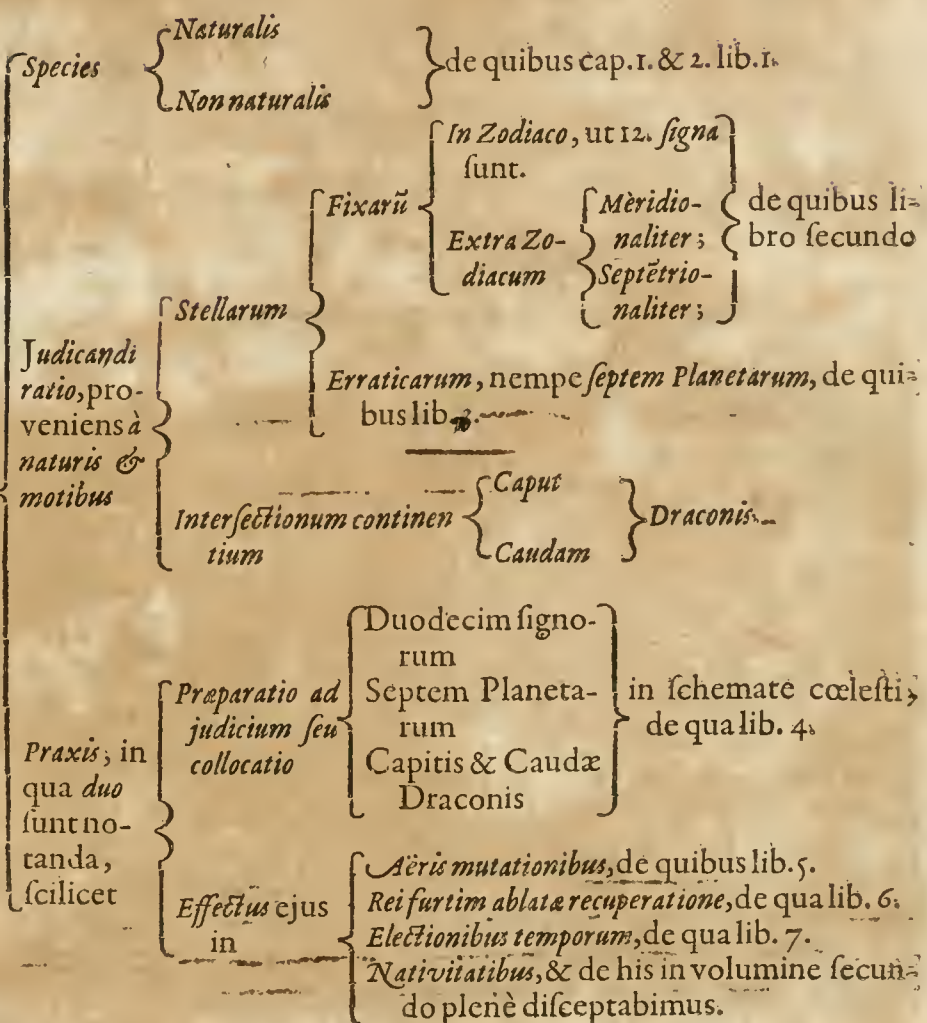 Species
Naturalis
Non naturalis
de quibus cap. 1. & 2. lib. 1.
Judicandi
ratio, pro-
veniens à
naturis &
motibus
Stellarum
Fixarũ
In Zodiaco, ut 12. ſigna
ſunt.
Extra Zo-
diacum
Mèridio-
naliter;
Septẽtrio-
naliter;
de quibus li-
bro ſecundo
Erraticarum, nempe ſeptem Planetarum, de qui-
bus lib.
Interſectionum continen
tium
Caput
Caudam
Draconis.
Praxis; in
qua duo
ſunt no-
tanda,
ſcilicet
Præparatio ad
judicium ſeu
collocatio
Duodecim ſigno-
rum
Septem Planeta-
rum
Capitis & Caudæ
Draconis
in ſchemate cœleſti,
de qua lib. 4.
Effectus ejus
in
Aëris mutationibus, de quibus lib. 5.
Rei furtim ablatæ recuperatione, de qua lib. 6.
Electionibus temporum, de qua lib. 7.
Nativitatibus, & de his in volumine ſecun-
do plenè diſceptabimus.